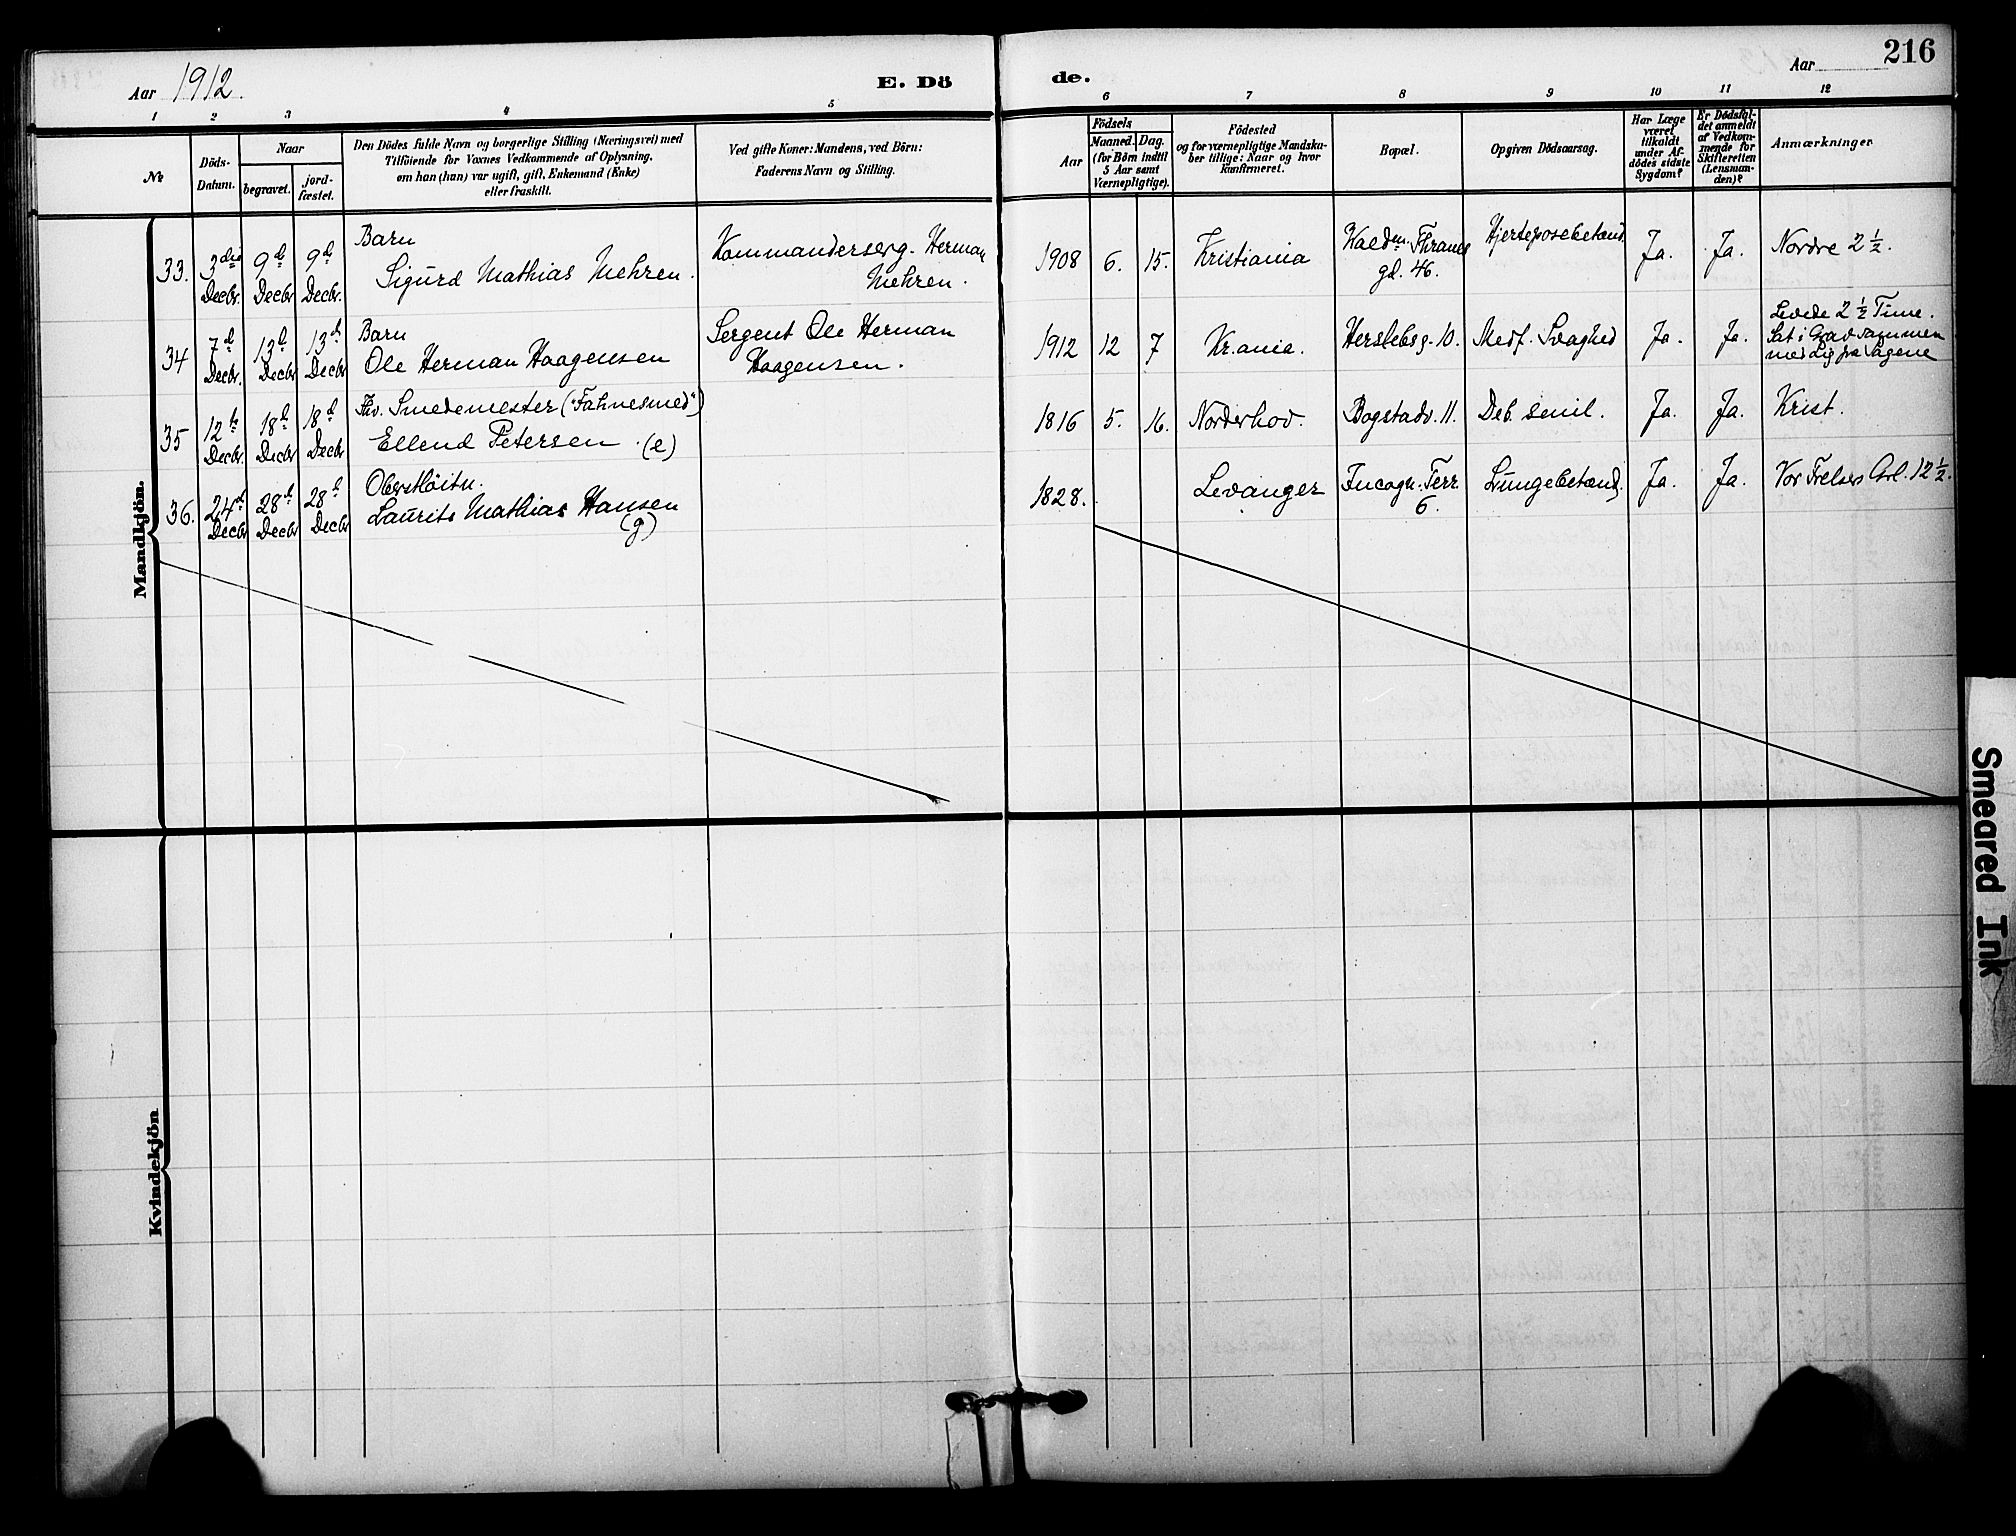 216
Aar 1912.
E. Dö
de.
Aar
1 2 3 4 5 6 7 8 9 10 11 12
№
Döds-
Datum.
Naar
begravet.
jord-
fæstet.
Den Dödes fulde Navn og borgerlige Stilling (Næringsvei) med
Tilföiende for Voxnes Vedkommende af Oplysning,
om han (hun) var ugift, gift, Enkemand (Enke)
eller fraskilt.
Ved gifte Koner: Mandens, ved Börn:
Faderens Navn og Stilling.
Aar
Födsels
Maaned. Dag.
(for Børn indtil
5 Aar samt
Værnepligtige).
Födested
og for værnepligtige Mandska-
ber tillige: Naar og hvor
konfirmeret.
Bopæl.
Opgiven Dödsaarsag.
Har Læge
været
tilkaldt
under Af-
dödes sidste
Sygdom?
Er Dödsfal-
det anmeldt
af Vedkom-
mende for
Skifteretten
(Lensman-
den)?
Anmærkninger
Mandkjön.
33.
3die
Decbr.
9d
Decbr
9d
Decbr.
Barn
Sigurd Mathias Mehren.
Kommandersserg. Herman
Mehren.
1908 6. 15. Kristiania
Waldm. Thranes
gd. 46.
Hjerteposebetænd.
Ja. Ja. Nordre 2 ½.
34
7d
Decbr.
13d
Decbr
13d
Decbr
Barn
Ole Herman Haagensen
Sergent Ole Herman
Haagensen.
1912 12 7 Kr.ania. Herslebsg. 10. Medf. Svaghed Ja. Ja.
Levede 2 ½ Time.
Sat i Grav sammen
med Lig fra Sagene
35
12te
Decbr.
18d
Decbr
18d
Decbr
Fhv. Smedemester ("Fahnesmed")
Ellend Petersen (e)
1816 5. 16. Norderhov. Bogstadv. 11. Deb. senil. Ja. Ja. Krist.
36.
24d
Decbr
28d
Decbr
28d
Decbr
Oberstløitn.
Laurits Mathias Hansen
(g)
1828. Levanger
Incogn. Terr.
6.
Lungebetænd. Ja. Ja. Vor Frelsers Grl. 12 ½.
Kvindekjön
Smeared Ink